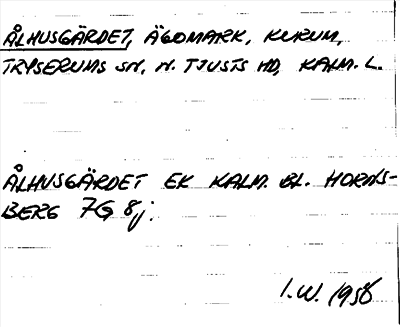 ÅLHUSGÄRDET, ÄGOMARK, KURUM,
TRYSERUMS SN, N. TJUSTS HD, KALM. L.
ÅLHUSGÄRDET EK KALM. BL. HORNS-
BERG 7G 8j.
I.W. 1958